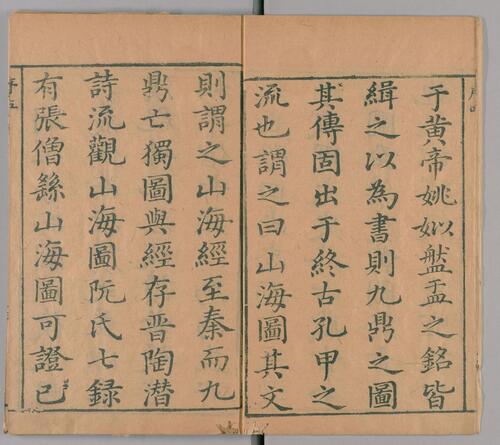 于黃帝姚姒盤盂之銘皆
緝之以為書則九鼎之圖
其傳固出于終古孔甲之
流也謂之曰山海圖其文
則謂之山海經至秦而九
鼎亡獨圖與經存晉陶潛
詩流觀山海圖阮氏七錄
有張僧繇山海圖可證已